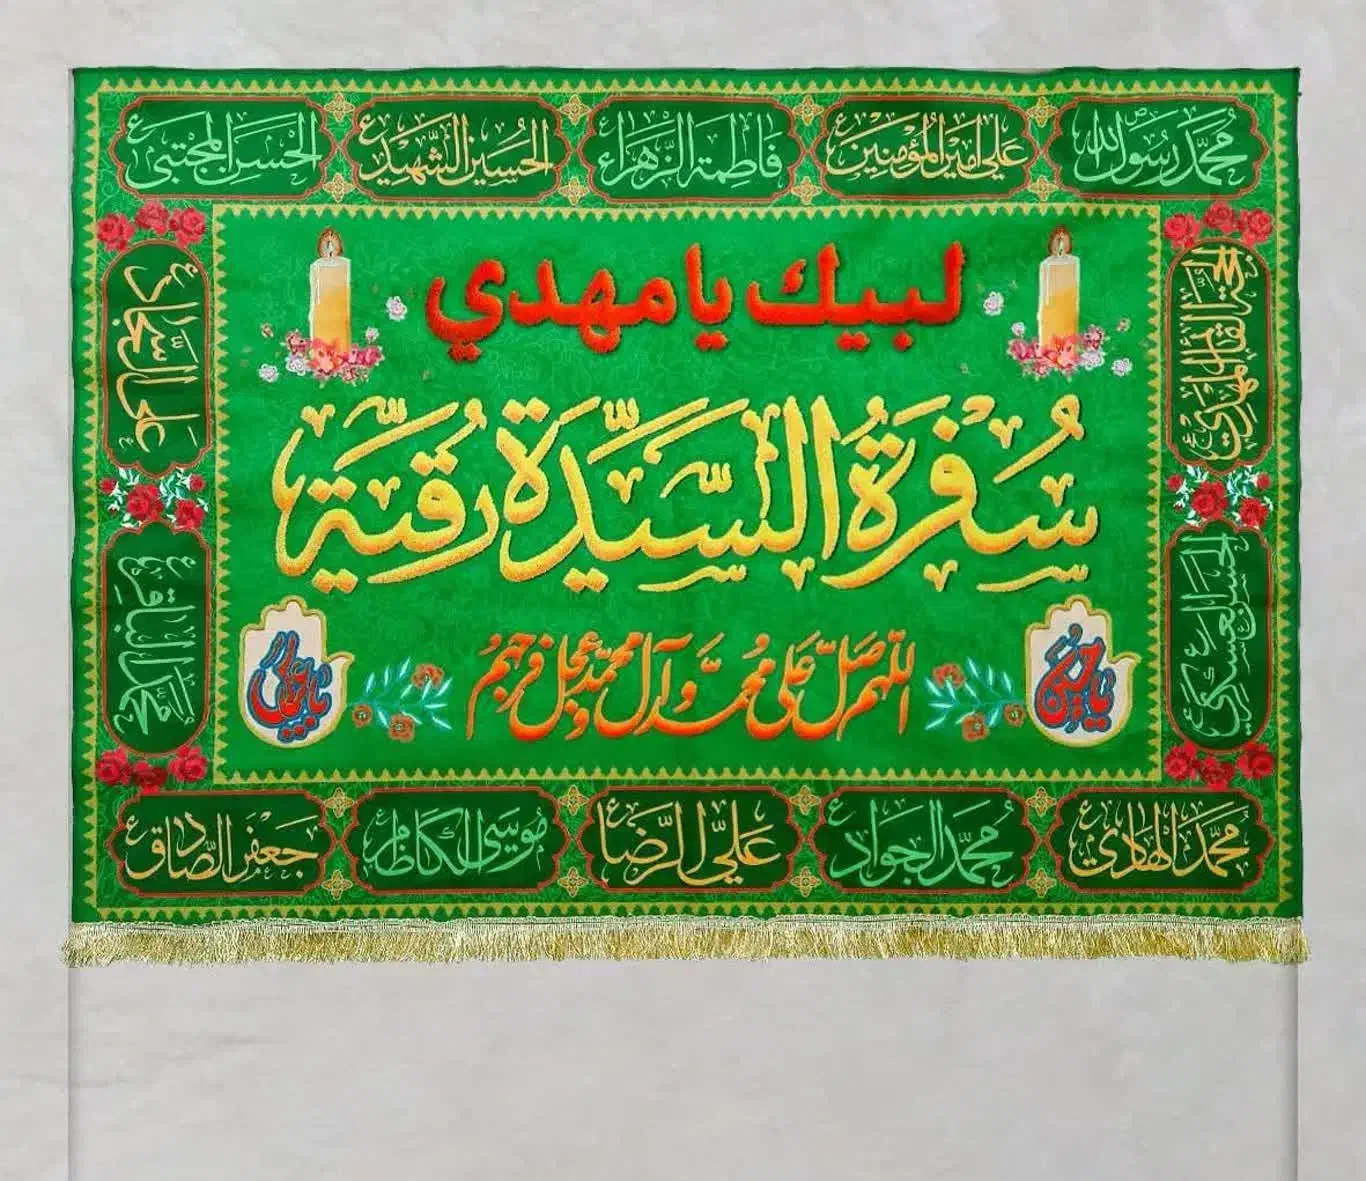 محمد رسول الله ص
علي امير المؤمنين ع
فاطمة الزهراء ع
الحسين الشهيد ع
الحسن المجتبى ع
لبيك يا مهدي
سُفرة السيّدة رقيّة
اللهم صل على محمد وآل محمد وعجل فرجهم
يا حسين
علي السجاد ع
محمد الباقر ع
جعفر الصادق ع
موسى الكاظم ع
علي الرضا ع
محمد الجواد ع
محمد الهادي ع
الحسن العسكري ع
الحجة القائم المهدي ع